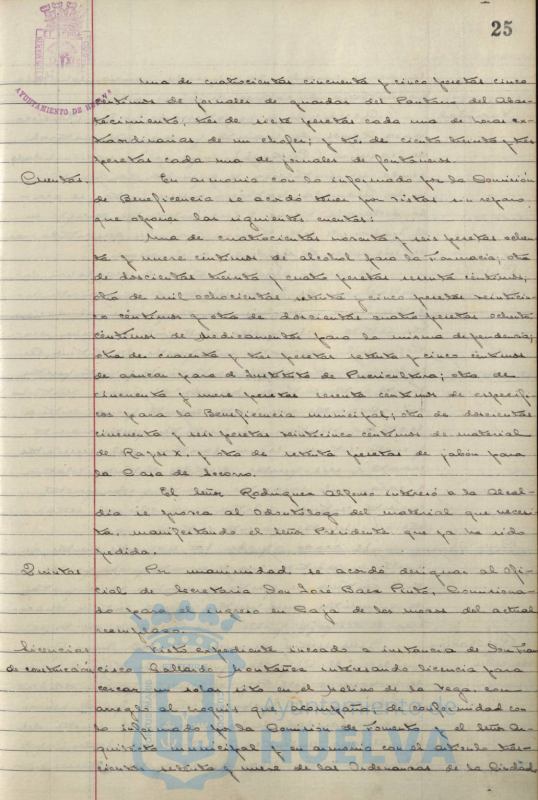 25
AYUNTAMIENTO DE HUELVA
Una de cuatrocientas cincuenta y cinco pesetas cinco
céntimos de jornales de guardas del Pantano del Abas-
tecimiento, tres de siete pesetas cada una de horas ex-
traordinarias de un chofer; y tres de ciento treinta y tres
pesetas cada una de jornales de fontaneros.
Cuentas. En armonia con lo informado por la Comisión
de Beneficencia se acordó tener por vistas sin reparo
que oponer las siguientes cuentas:
Una de cuatrocientas noventa y seis pesetas ochen-
ta y nueve céntimos de alcohol para la Farmacia; otra
de doscientas treinta y cuatro pesetas sesenta céntimos,
otra de mil ochocientas setenta y cinco pesetas veinticin-
co céntimos y otra de doscientas cuatro pesetas ochenta
céntimos de medicamentos para la misma dependencia;
otra de cuarenta y tres pesetas setenta y cinco céntimos
de azucar para el Instituto de Puericultura; otra de
cincuenta y nueve pesetas sesenta céntimos de específi-
cos para la Beneficencia municipal; otra de doscientas
cincuenta y seis pesetas veinticinco céntimos de material
de Rayos X. y otra de setenta pesetas de jabón para
la Casa de Socorro.
El Señor Rodriguez Alfonso interesó a la Alcal-
dia se provea al Odontólogo del material que necesi-
ta, manifestando el Señor Presidente que ya ha sido
pedida.
Quintas Por unanimidad se acordó designar al Ofi-
cial de Secretaria Don José Baez Pinto, Comisiona-
do para el ingreso en Caja de los mozos del actual
reemplazo.
Licencias Visto expediente incoado a instancia de Don Fran-
de construcción cisco Gallardo Montañez interesando licencia para
cercar un solar sito en el Molino de la Vega, con
arreglo al croquis que acompaña, de conformidad con
lo informado por la Comisión de Fomento y el Señor Ar-
quitecto municipal y en armonia con el articulo tres-
cientos setenta y nueve de las Ordenanzas de la Ciudad
Ayuntamiento de
HUELVA